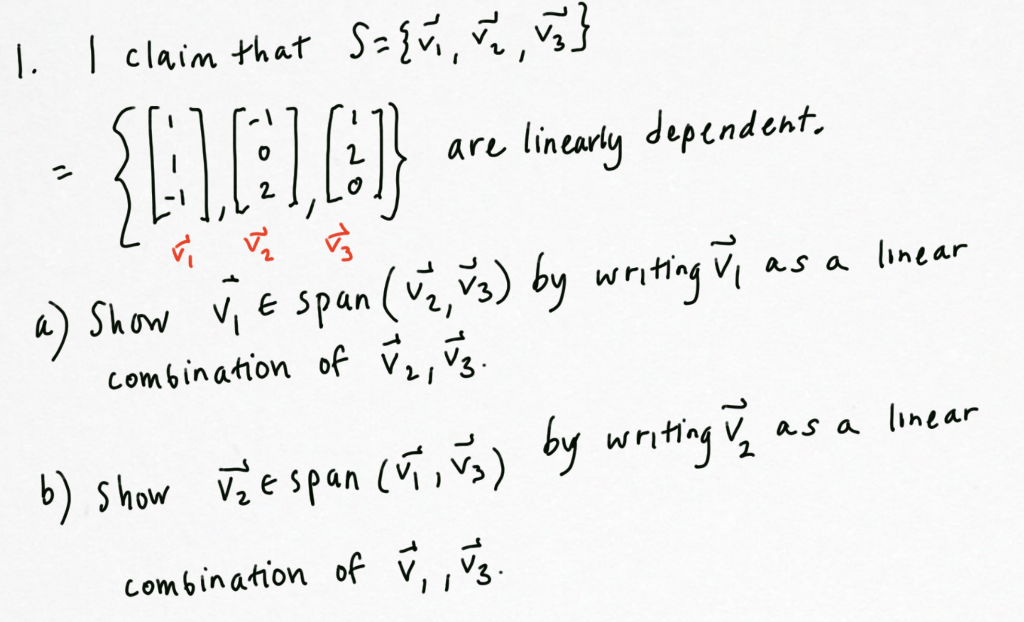 1. I claim that S={v⃗₁, v⃗₂, v⃗₃}
= {[1 1 -1], [-1 0 2], [1 2 0]} are linearly dependent.
v⃗₁ v⃗₂ v⃗₃
a) Show v⃗₁ ∈ span(v⃗₂, v⃗₃) by writing v⃗₁ as a linear
combination of v⃗₂, v⃗₃.
b) Show v⃗₂ ∈ span(v⃗₁, v⃗₃) by writing v⃗₂ as a linear
combination of v⃗₁, v⃗₃.